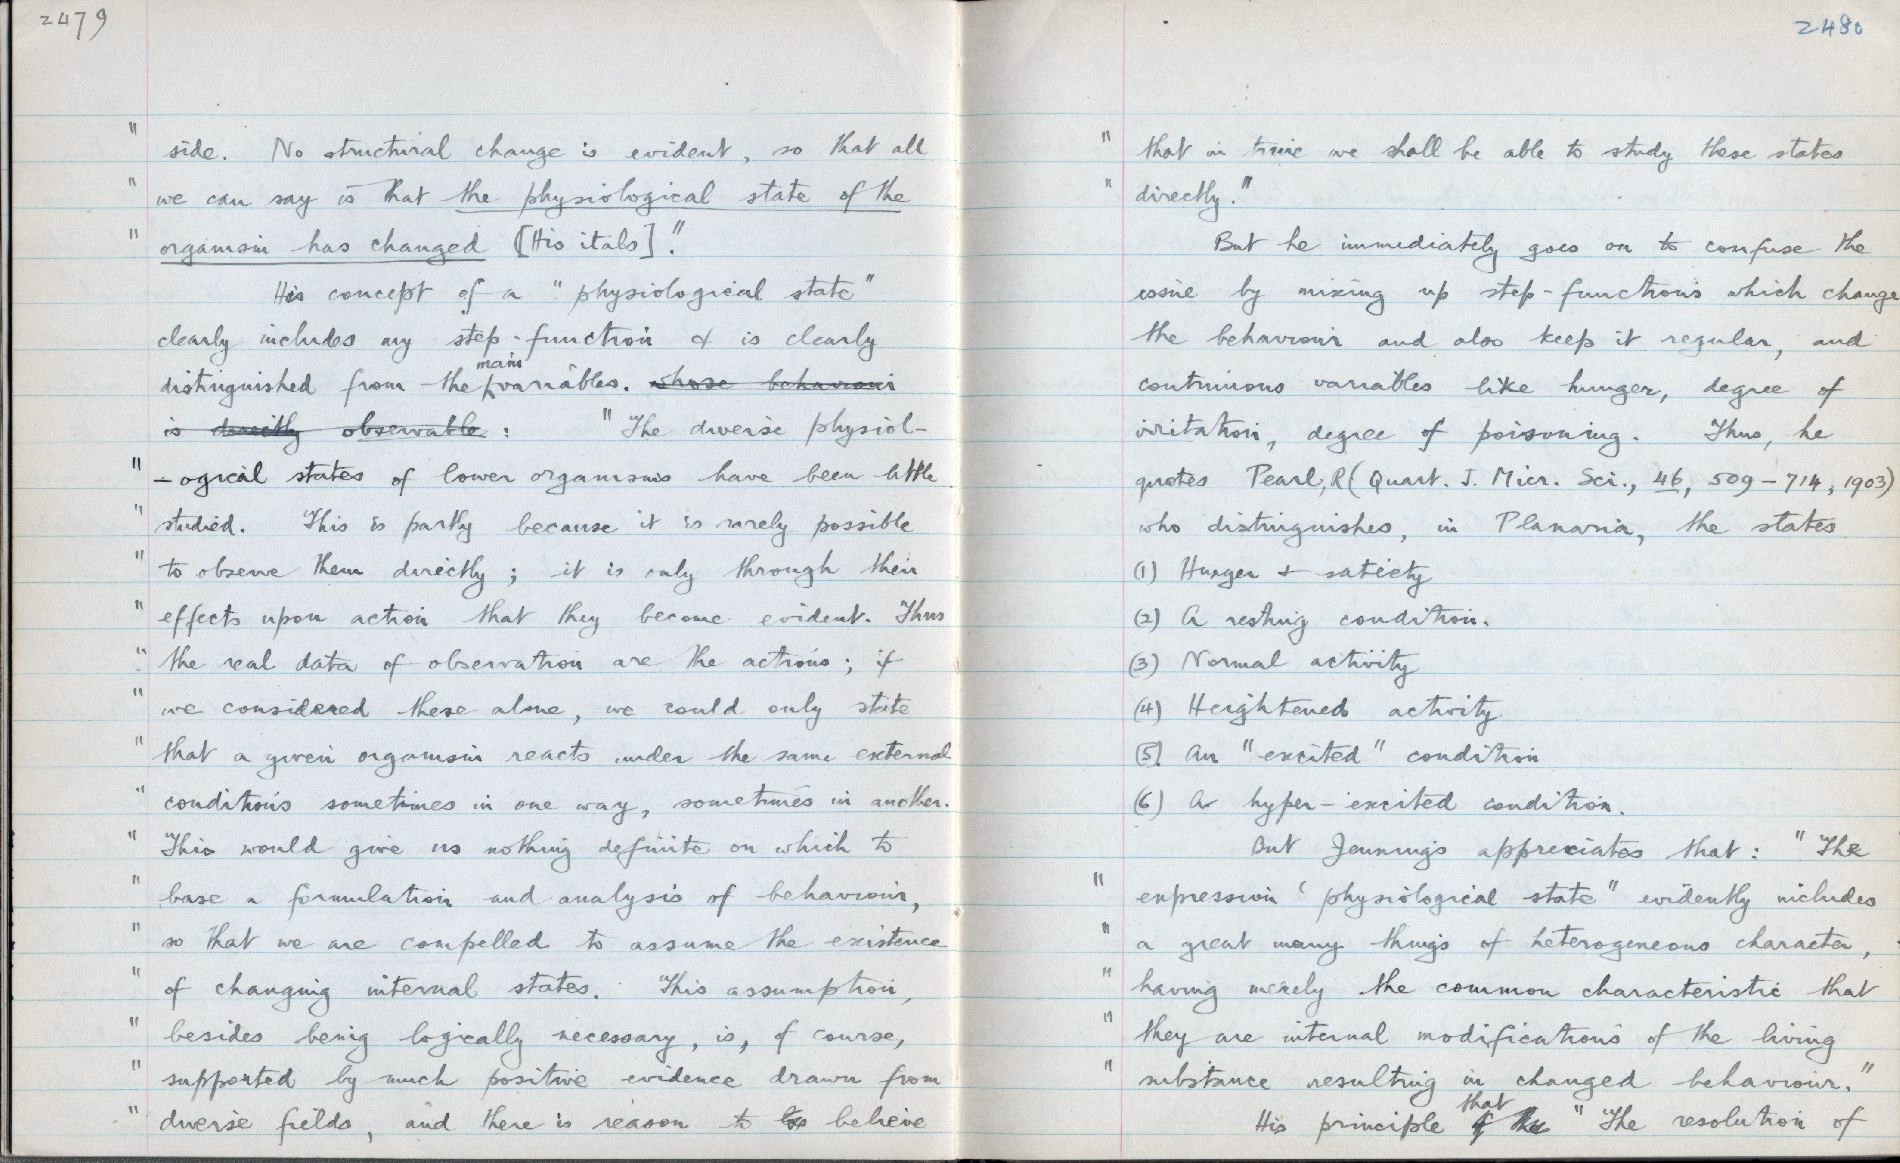 2479
" side. No structural change is evident, so that all
" we can say is that the physiological state of the
" organism has changed [His itals]."
His concept of a "physiological state"
clearly includes my step-function & is clearly
distinguished from the main variables. whose behaviour
is directly observable : "The diverse physiol-
" -ogical states of lower organisms have been little
" studied. This is partly because it is rarely possible
" to observe them directly; it is only through their
" effects upon action that they become evident. Thus
" the real data of observation are the actions; if
" we considered these alone, we could only state
" that a given organism reacts under the same external
" conditions sometimes in one way, sometimes in another.
" This would give us nothing definite on which to
" base a formulation and analysis of behaviour,
" so that we are compelled to assume the existence
" of changing internal states. This assumption,
" besides being logically necessary, is, of course,
" supported by much positive evidence drawn from
" diverse fields, and there is reason to believe
2480
" that in time we shall be able to study these states
" directly."
But he immediately goes on to confuse the
issue by mixing up step-functions which change
the behaviour and also keep it regular, and
continuous variables like hunger, degree of
irritation, degree of poisoning. Thus, he
quotes Pearl, R (Quart. J. Micr. Sci., 46, 509-714, 1903)
who distinguishes, in Planaria, the states
(1) Hunger & satiety
(2) A resting condition.
(3) Normal activity
(4) Heightened activity
(5) An "excited" condition
(6) A hyper-excited condition.
But Jennings appreciates that: "The
" expression 'physiological state" evidently includes
" a great many things of heterogeneous character,
" having merely the common characteristic that
" they are internal modifications of the living
" substance resulting in changed behaviour."
His principle that "The resolution of